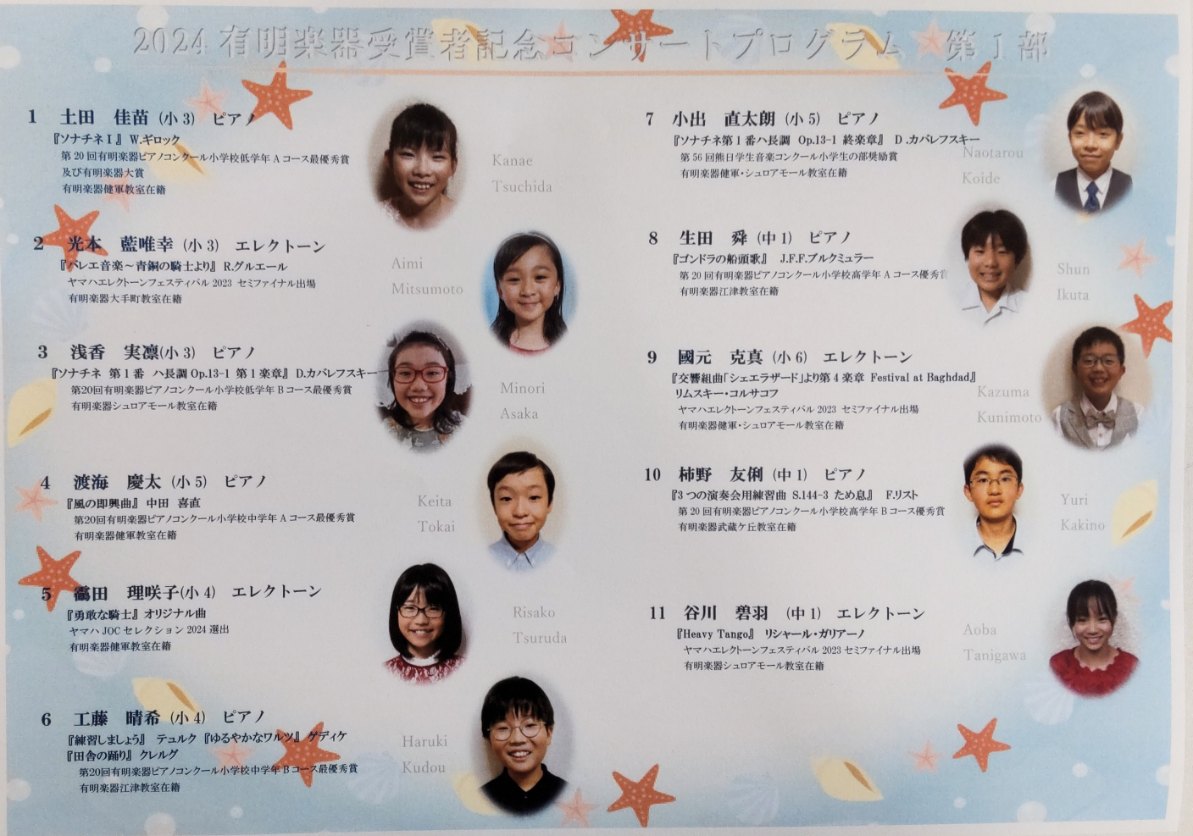 2024 有明楽器受賞者記念コンサートプログラム 第Ⅰ部
1 土田 佳苗 (小3) ピアノ
『ソナチネⅠ』 W.ギロック
第20回有明楽器ピアノコンクール小学校低学年Aコース最優秀賞
及び有明楽器大賞
有明楽器健軍教室在籍
Kanae
Tsuchida
2 光本 藍唯幸 (小3) エレクトーン
『バレエ音楽～青銅の騎士より』 R.グルエール
ヤマハエレクトーンフェスティバル2023 セミファイナル出場
有明楽器大手町教室在籍
Aimi
Mitsumoto
3 浅香 実凛(小3) ピアノ
『ソナチネ 第1番 ハ長調 Op.13-1 第1楽章』 D.カバレフスキー
第20回有明楽器ピアノコンクール小学校低学年Bコース最優秀賞
有明楽器シュロアモール教室在籍
Minori
Asaka
4 渡海 慶太 (小5) ピアノ
『風の即興曲』 中田 喜直
第20回有明楽器ピアノコンクール小学校中学年Aコース最優秀賞
有明楽器健軍教室在籍
Keita
Tokai
5 靏田 理咲子(小4) エレクトーン
『勇敢な騎士』 オリジナル曲
ヤマハJOCセレクション2024 選出
有明楽器健軍教室在籍
Risako
Tsuruda
6 工藤 晴希 (小4) ピアノ
『練習しましょう』 テュルク 『ゆるやかなワルツ』 ゲディケ
『田舎の踊り』 クレルグ
第20回有明楽器ピアノコンクール小学校中学年Bコース最優秀賞
有明楽器江津教室在籍
Haruki
Kudou
7 小出 直太朗 (小5) ピアノ
『ソナチネ第1番ハ長調 Op.13-1 終楽章』 D.カバレフスキー
第56回熊日学生音楽コンクール小学生の部奨励賞
有明楽器健軍・シュロアモール教室在籍
Naotarou
Koide
8 生田 舜 (中1) ピアノ
『ゴンドラの船頭歌』 J.F.F.ブルクミュラー
第20回有明楽器ピアノコンクール小学校高学年Aコース優秀賞
有明楽器江津教室在籍
Shun
Ikuta
9 國元 克真 (小6) エレクトーン
『交響組曲「シェエラザード」より第4楽章 Festival at Baghdad』
リムスキー・コルサコフ
ヤマハエレクトーンフェスティバル2023 セミファイナル出場
有明楽器健軍・シュロアモール教室在籍
Kazuma
Kunimoto
10 柿野 友俐 (中1) ピアノ
『3つの演奏会用練習曲 S.144-3 ため息』 F.リスト
第20回有明楽器ピアノコンクール小学校高学年Bコース優秀賞
有明楽器武蔵ケ丘教室在籍
Yuri
Kakino
11 谷川 碧羽 (中1) エレクトーン
『Heavy Tango』 リシャール・ガリアーノ
ヤマハエレクトーンフェスティバル2023 セミファイナル出場
有明楽器シュロアモール教室在籍
Aoba
Tanigawa